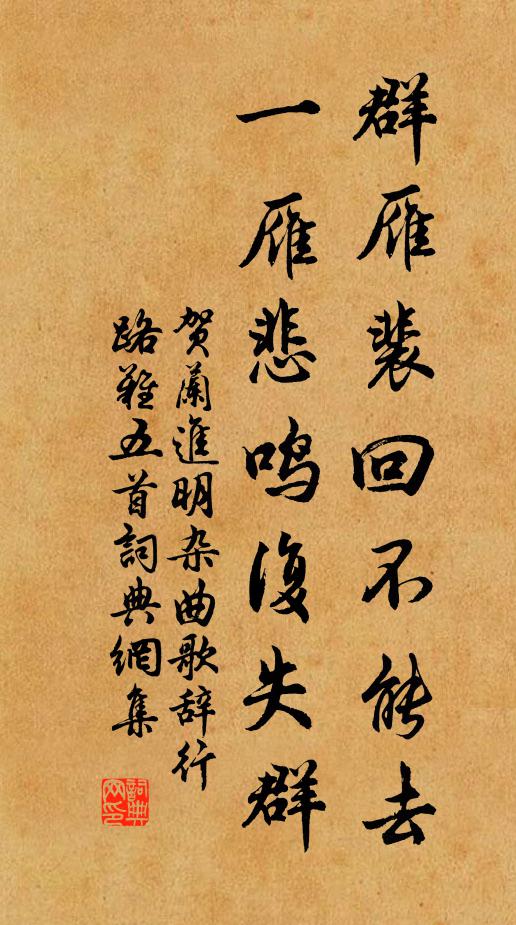 群雁裴回不能去
一雁悲鸣復失群
贺蘭進明杂曲歌辞行
路難五首詞典網集
詞典
网印